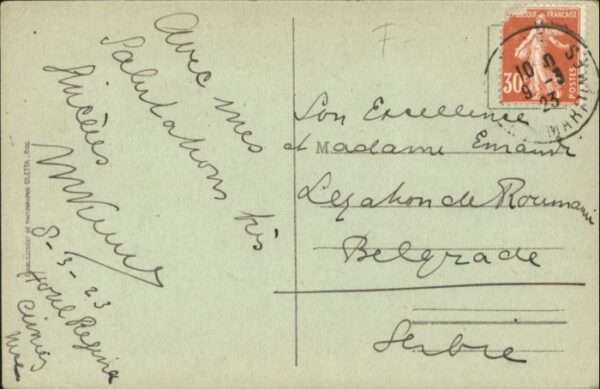 Avec mes
Salutations très
Sincères
8-3-23
Hotel Regina
Cimiez
Nice
REPUBLIQUE FRANCAISE
30c
POSTES
10
9-3
23
Son Excellence
et Madame Emandi
Legation de Roumanie
Belgrade
Serbie